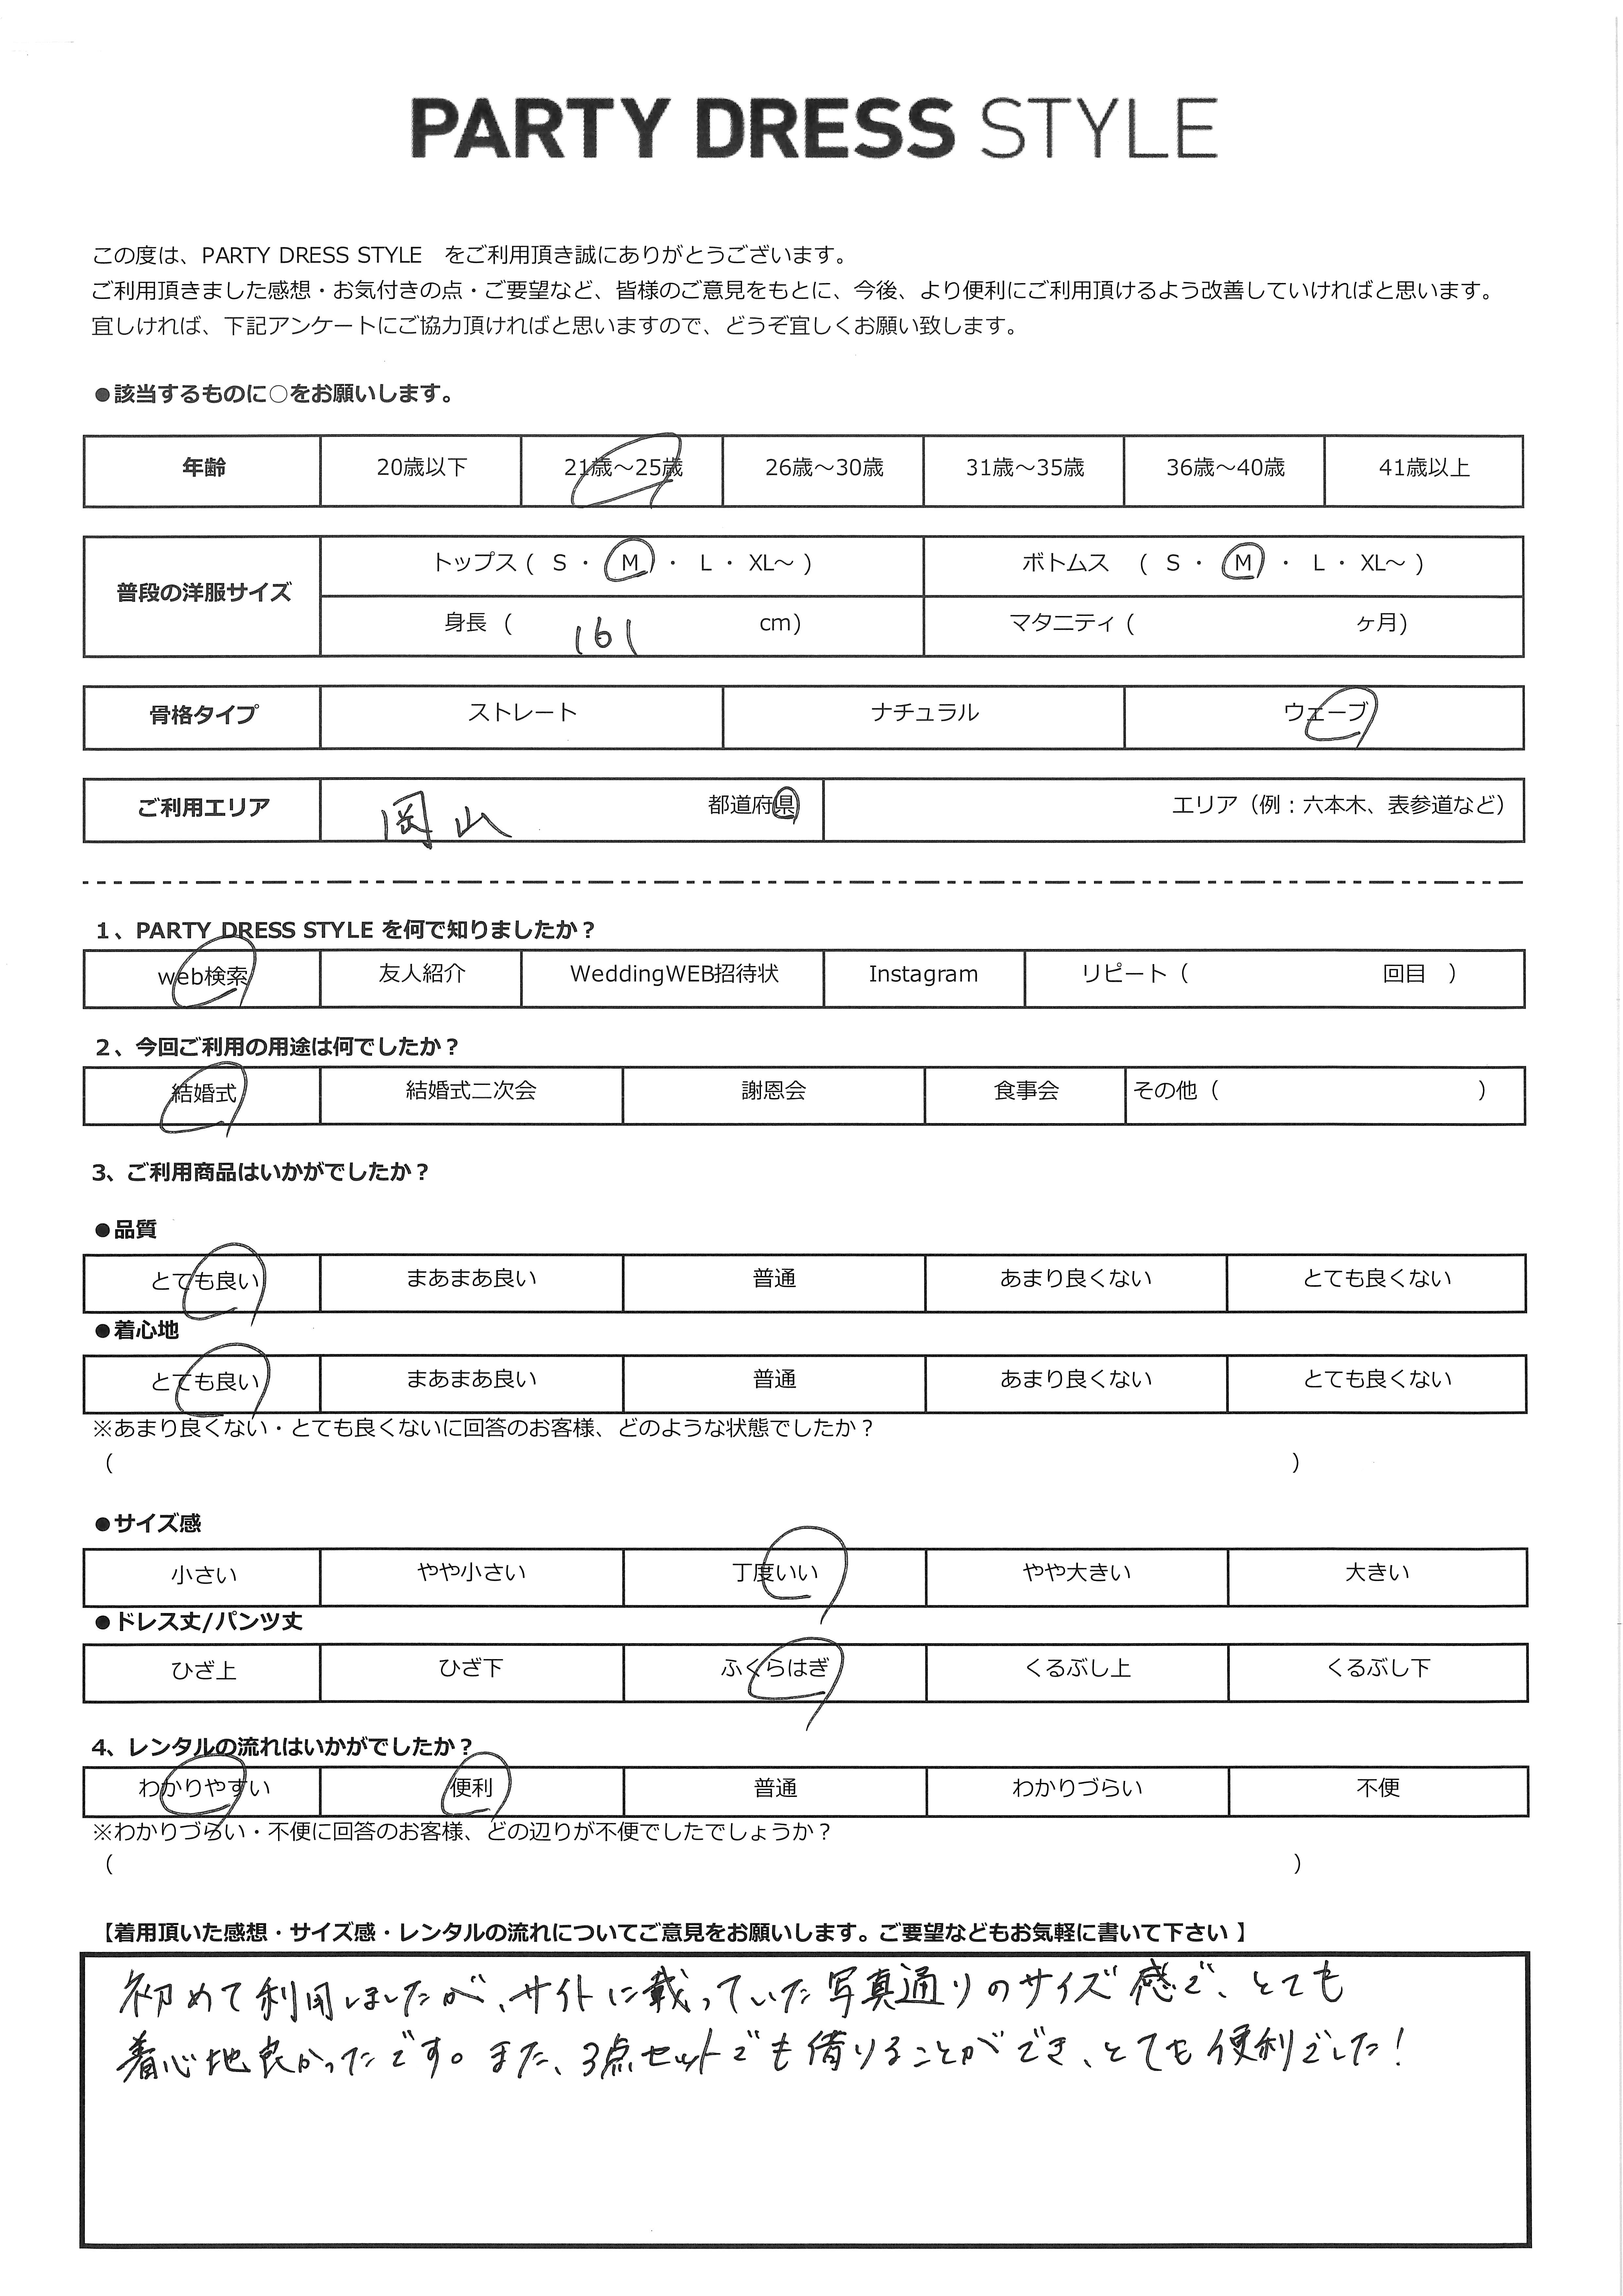 PARTY DRESS STYLE
この度は、PARTY DRESS STYLE　をご利用頂き誠にありがとうございます。
ご利用頂きました感想・お気付きの点・ご要望など、皆様のご意見をもとに、今後、より便利にご利用頂けるよう改善していければと思います。
宜しければ、下記アンケートにご協力頂ければと思いますので、どうぞ宜しくお願い致します。
●該当するものに○をお願いします。
年齢 20歳以下 21歳～25歳 26歳～30歳 31歳～35歳 36歳～40歳 41歳以上
普段の洋服サイズ
トップス ( S ・ M ・ L ・ XL～ ) ボトムス ( S ・ M ・ L ・ XL～ )
身長 ( 161 cm) マタニティ ( ヶ月)
骨格タイプ ストレート ナチュラル ウェーブ
ご利用エリア 岡山 都道府県 エリア（例：六本木、表参道など）
1、PARTY DRESS STYLE を何で知りましたか？
web検索 友人紹介 WeddingWEB招待状 Instagram リピート（ 回目 ）
2、今回ご利用の用途は何でしたか？
結婚式 結婚式二次会 謝恩会 食事会 その他（ ）
3、ご利用商品はいかがでしたか？
●品質
とても良い まあまあ良い 普通 あまり良くない とても良くない
●着心地
とても良い まあまあ良い 普通 あまり良くない とても良くない
※あまり良くない・とても良くないに回答のお客様、どのような状態でしたか？
（ ）
●サイズ感
小さい やや小さい 丁度いい やや大きい 大きい
●ドレス丈/パンツ丈
ひざ上 ひざ下 ふくらはぎ くるぶし上 くるぶし下
4、レンタルの流れはいかがでしたか？
わかりやすい 便利 普通 わかりづらい 不便
※わかりづらい・不便に回答のお客様、どの辺りが不便でしたでしょうか？
（ ）
【着用頂いた感想・サイズ感・レンタルの流れについてご意見をお願いします。ご要望などもお気軽に書いて下さい 】
初めて利用しましたが、サイトに載っていた写真通りのサイズ感で、とても
着心地良かったです。また、3点セットでも借りることができ、とても便利でした！